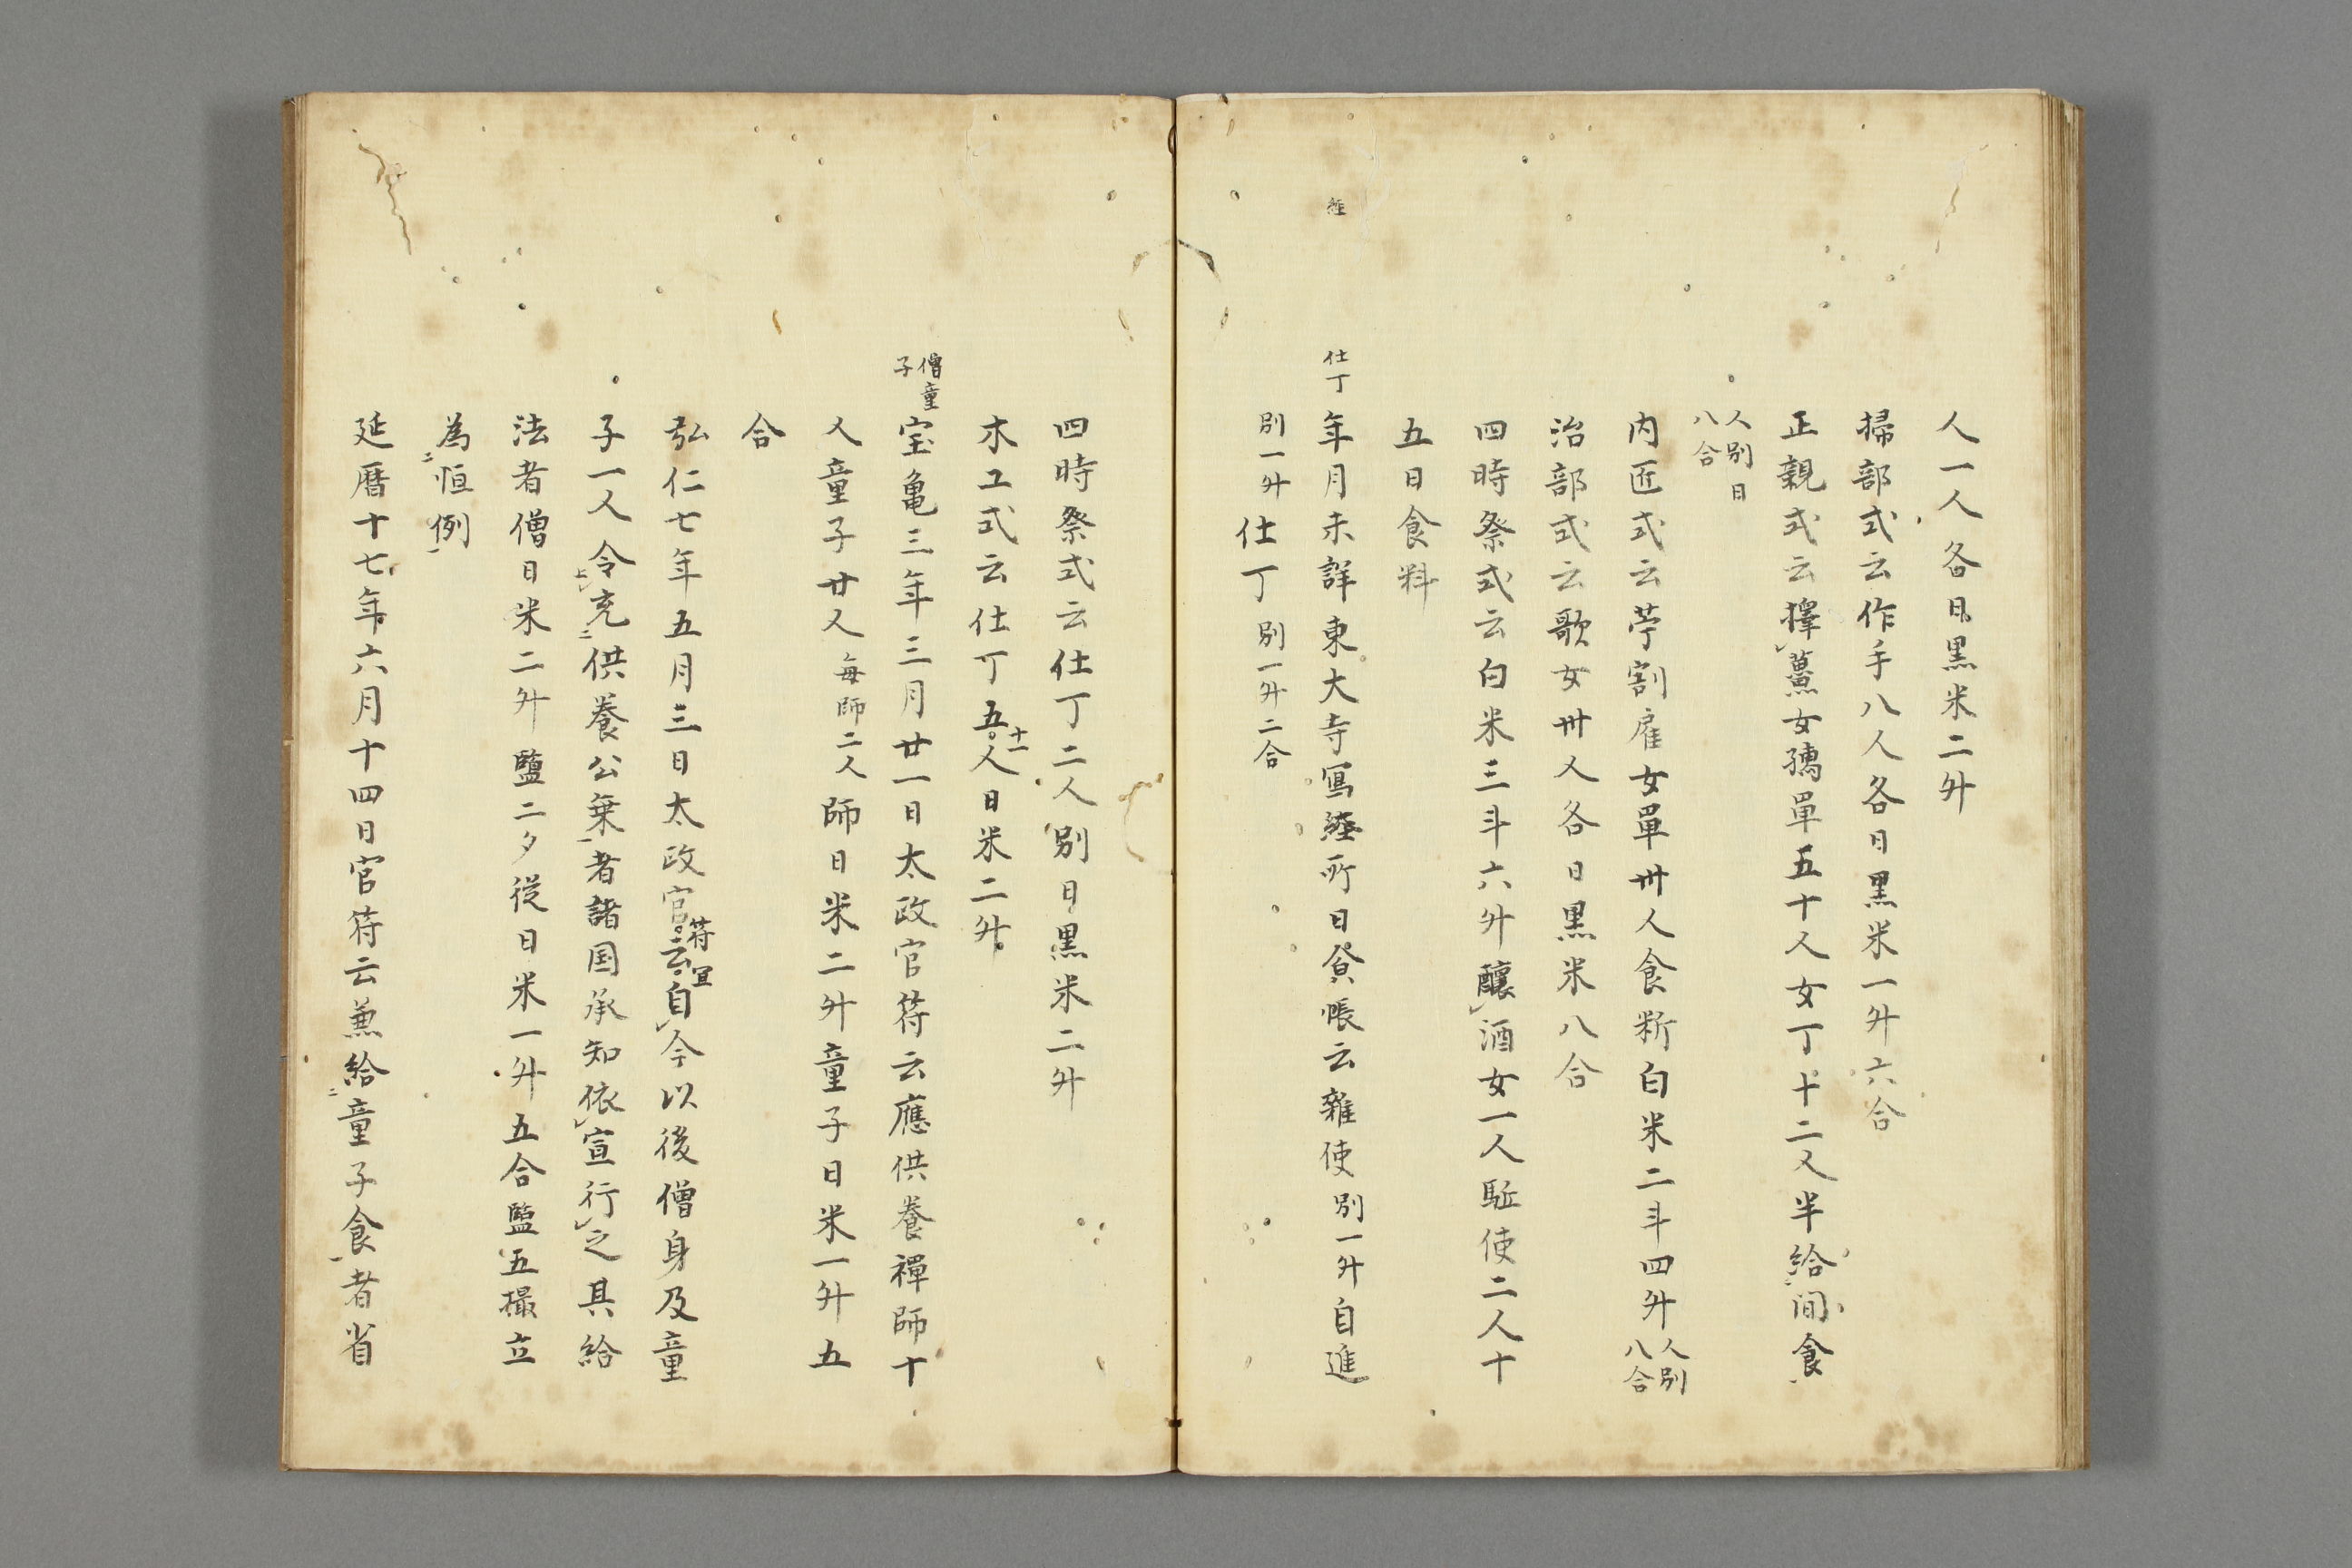 人一人各日黒米二升
掃部式云作手八人各日黒米一升六合
正親式云擇薑女孺單五十人女丁十二人半給間食
人別日
八合
内匠式云苧割雇女單卅人食新白米二斗四升人別八合
治部式云歌女卅人各日黒米八合
四時祭式云白米三斗六升釀酒女一人駈使二人十
五日食料
経
仕丁
年月未詳東大寺寫経所日食帳云雜使別一升自進
別一升仕丁別一升二合
四時祭式云仕丁二人別日黒米二升
木工式云仕丁五十一人日米二升
僧童
子
宝亀三年三月廿一日太政官符云應供養禪師十
人童子廿人每師二人師日米二升童子日米一升五
合
弘仁七年五月三日太政官符云宜自今以後僧身及童
子一人令充供養公乗者諸国承知依宣行之其給
法者僧日米二升鹽二夕従日米一升五合鹽五撮立
為恒例
延暦十七年六月十四日官符云兼給童子食者省